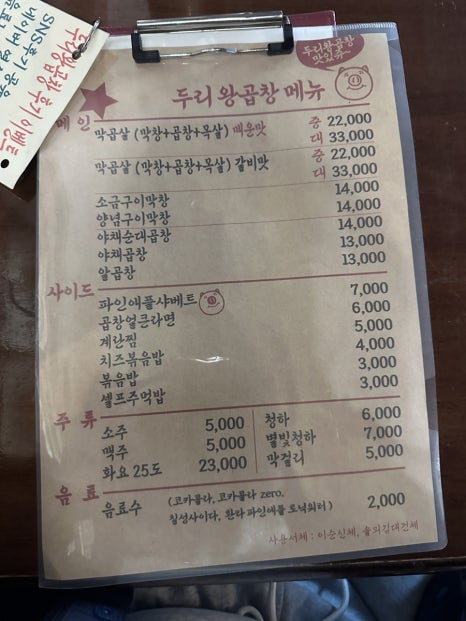 SNS후기 공유
네이버 영
두왕곱창 후기 이벤트
두리왕곱창
맛있쥬~
두리 왕곱창 메뉴
메인
막곱살 (막창+곱창+목살) 매운맛 중 22,000
대 33,000
막곱살 (막창+곱창+목살) 갈비맛 중 22,000
대 33,000
소금구이막창 14,000
양념구이막창 14,000
야채순대곱창 14,000
야채곱창 13,000
알곱창 13,000
사이드
파인애플샤베트 7,000
곱창얼큰라면 6,000
계란찜 5,000
치즈볶음밥 4,000
볶음밥 3,000
셀프주먹밥 3,000
주류
소주 5,000 청하 6,000
맥주 5,000 별빛청하 7,000
화요 25도 23,000 막걸리 5,000
음료
음료수 (코카콜라, 코카콜라 zero, 2,000
칠성사이다, 환타 파인애플 토닉워터)
사용서체 : 이순신체, 솔뫼김대건체